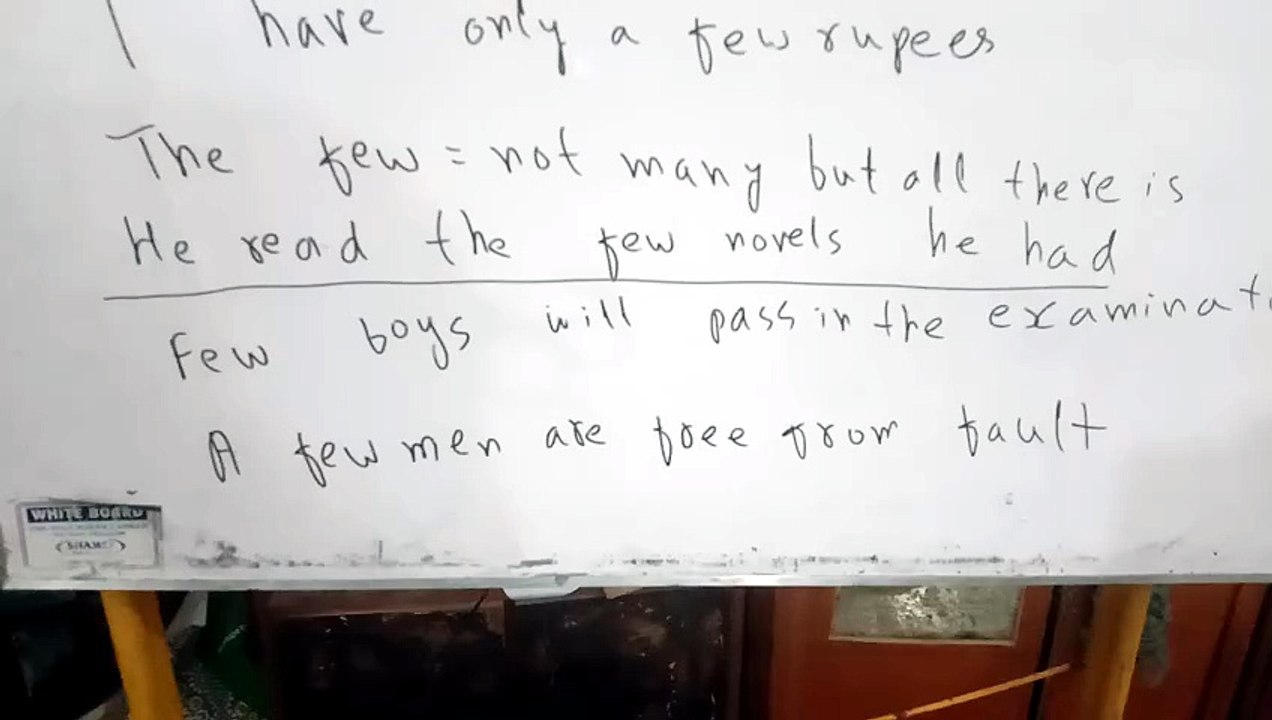 I have only a few rupees
The few = not many but all there is
He read the few novels he had
Few boys will pass in the examinat
A few men are free from fault
WHITE BOARD